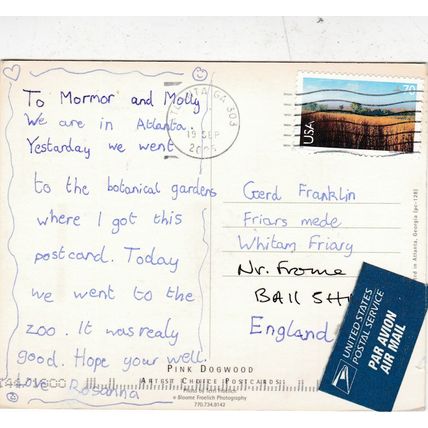 To Mormor and Molly.
We are in Atlanta.
Yestarday we went
to the botanical gardens
where I got this
postcard. Today
we went to the
zoo. It was realy
good. Hope your well.
Love Rosanna
GA 303
19 SEP
USA
70
Gerd Franklin
Friars mede
Whitam Friary
Nr. Frome
BA11
England
UNITED STATES
POSTAL SERVICE
PAR AVION
AIR MAIL
PINK DOGWOOD
ARTIST CHOICE POSTCARDS
© Bloome Froelich Photography
770.734.0142
in Atlanta, Georgia (pc-128)